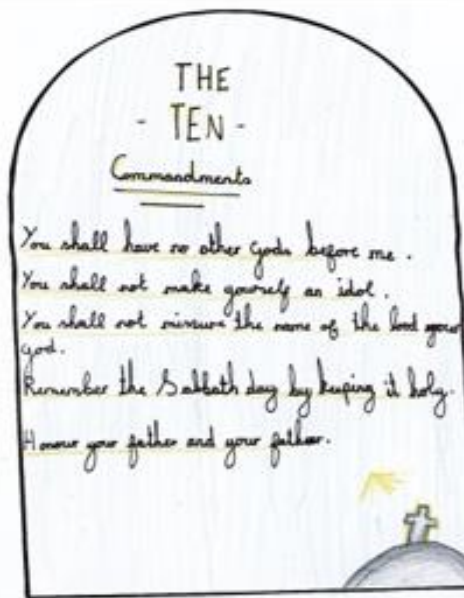 THE
- TEN -
Commandments
You shall have no other gods before me.
You shall not make yourself an idol.
You shall not misuse the name of the lord your
god.
Remember the Sabbath day by keeping it holy.
Honour your father and your father.